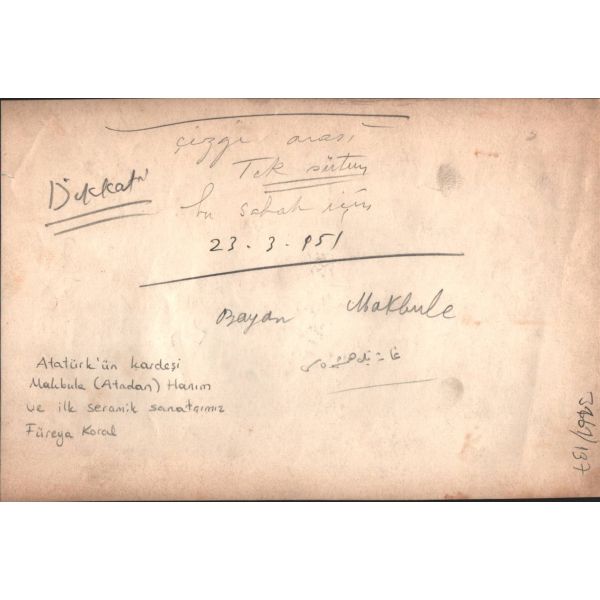 çizgi arası
Tek sütun
Dikkat
bu sabah için
23.3.951
Bayan Makbule
Atatürk'ün kardeşi
Makbule (Atadan) Hanım
ve ilk seramik sanatçımız
Füreya Koral